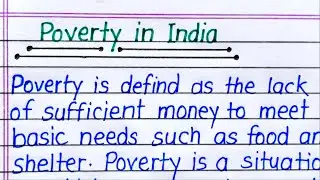 Poverty in India
Poverty is defind as the lack
of sufficient money to meet
basic needs such as food an
shelter. Poverty is a situatio